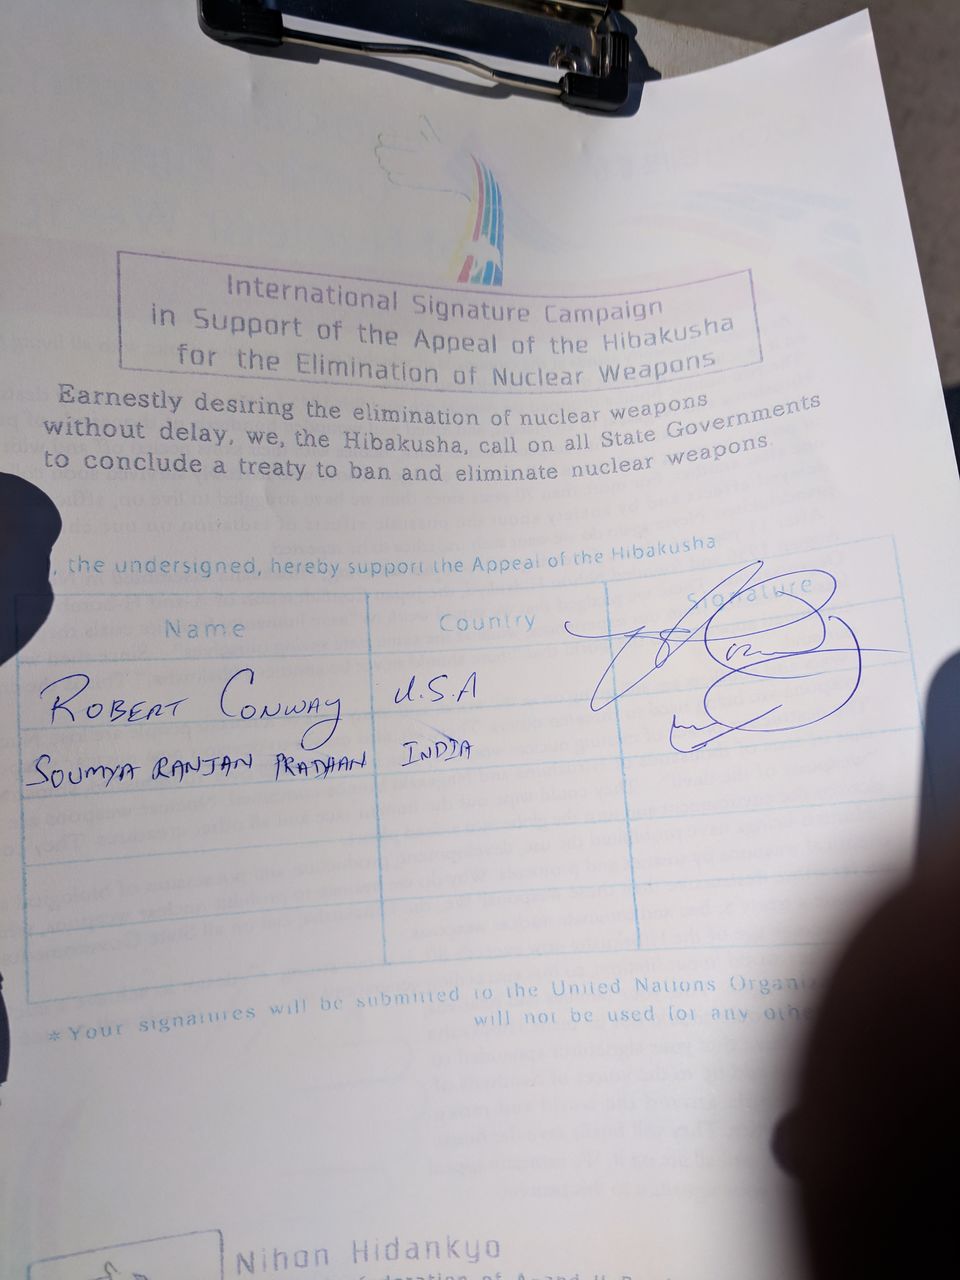 International Signature Campaign
in Support of the Appeal of the Hibakusha
for the Elimination of Nuclear Weapons
Earnestly desiring the elimination of nuclear weapons
without delay, we, the Hibakusha, call on all State Governments
to conclude a treaty to ban and eliminate nuclear weapons.
, the undersigned, hereby support the Appeal of the Hibakusha
Name Country Signature
ROBERT CONWAY U.S.A
SOUMYA RANJAN PRADHAN INDIA
*Your signatures will be submitted to the United Nations
will not be used for any
Nihon Hidankyo